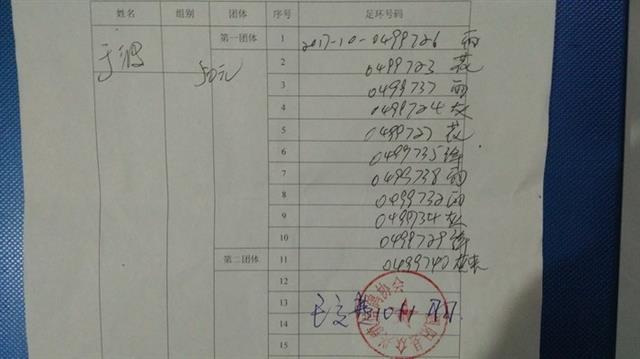 姓名 组别 团体 序号 足环号码
第一团体 1 2017-10-0499726 雨
50元 2 0499723 花
3 0499737 雨
4 0499724 灰
5 0499727 花
6 0499735 绛
7 0499738 雨
8 0499732 雨
9 0499734 灰
10 0499729 绛
第二团体 11 0499742
12
13
14
15